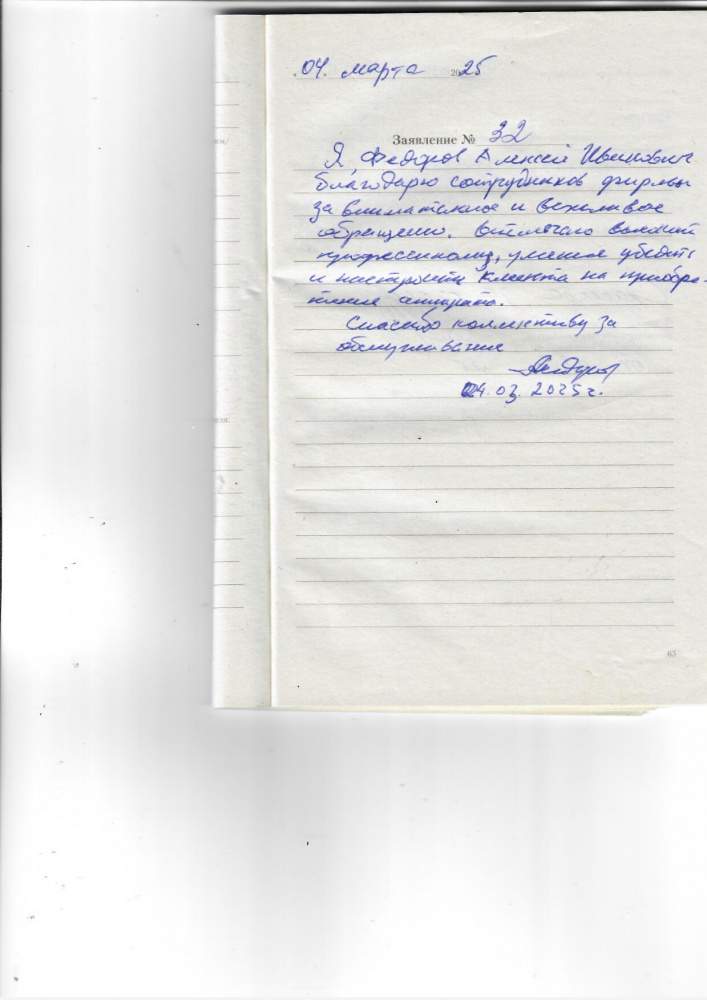 04. марта 2025
Заявление № 32
Я, Федоров Алексей Иванович
благодарю сотрудников фирмы
за внимательное и вежливое
обращение. Отмечаю высокий
профессионализм, умение убедить
и настроить клиента на приобре-
тение аппарата.
Спасибо коллективу за
обслуживание
04.03.2025г.
63